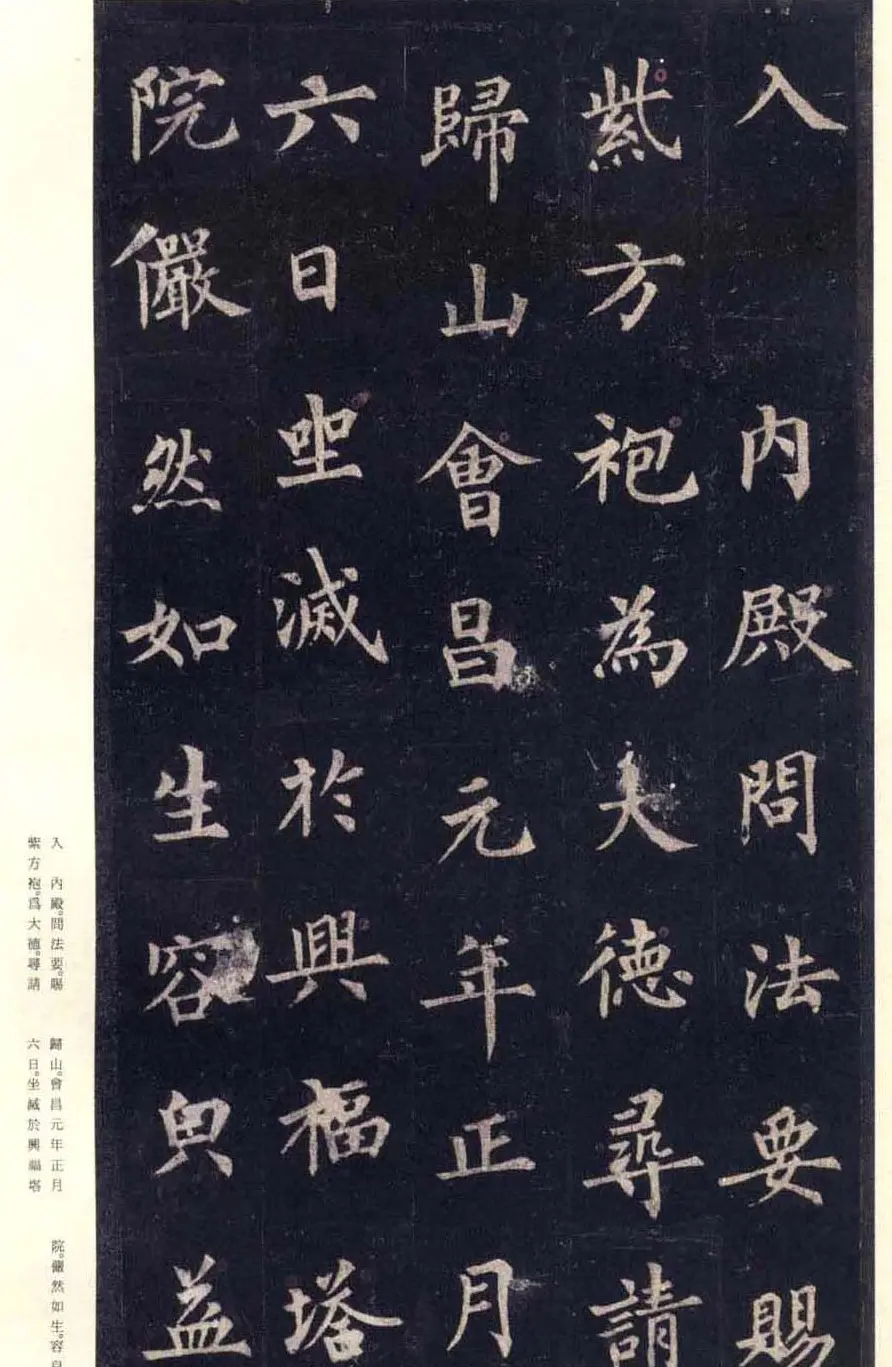 入 內殿問法要賜
紫方袍為大德尋請
歸山會昌元年正月
六日坐滅於興福塔
院儼然如生容皃益
入 內殿。問法要。賜
紫方袍。爲大德。尋請
歸山。會昌元年正月
六日。坐滅於興福塔
院。儼然如生。容皃